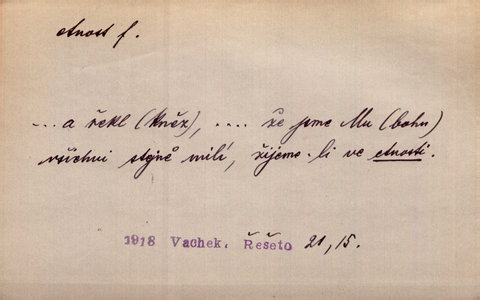 ctnost f.
... a řekl (kněz), .... že jsme Mu (bohu)
všichni stejně milí, žijeme-li ve ctnosti.
1918 Vachek, Řešeto 21, 15.